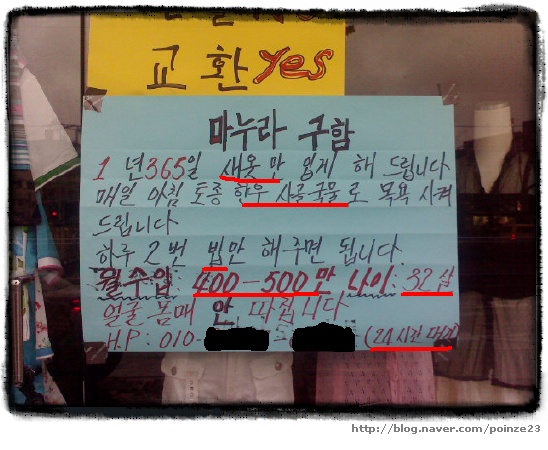 교환 yes
마누라 구함
1년365일 새옷만 입게 해 드립니다
매일 아침 토종 한우 사골국물로 목욕 시켜
드립니다
하루 2번 밥만 해주면 됩니다.
월수입: 400-500만 나이: 32살
얼굴 몸매 안 따집니다
H.P: 010- (24시간 대기)
http://blog.naver.com/poinze23